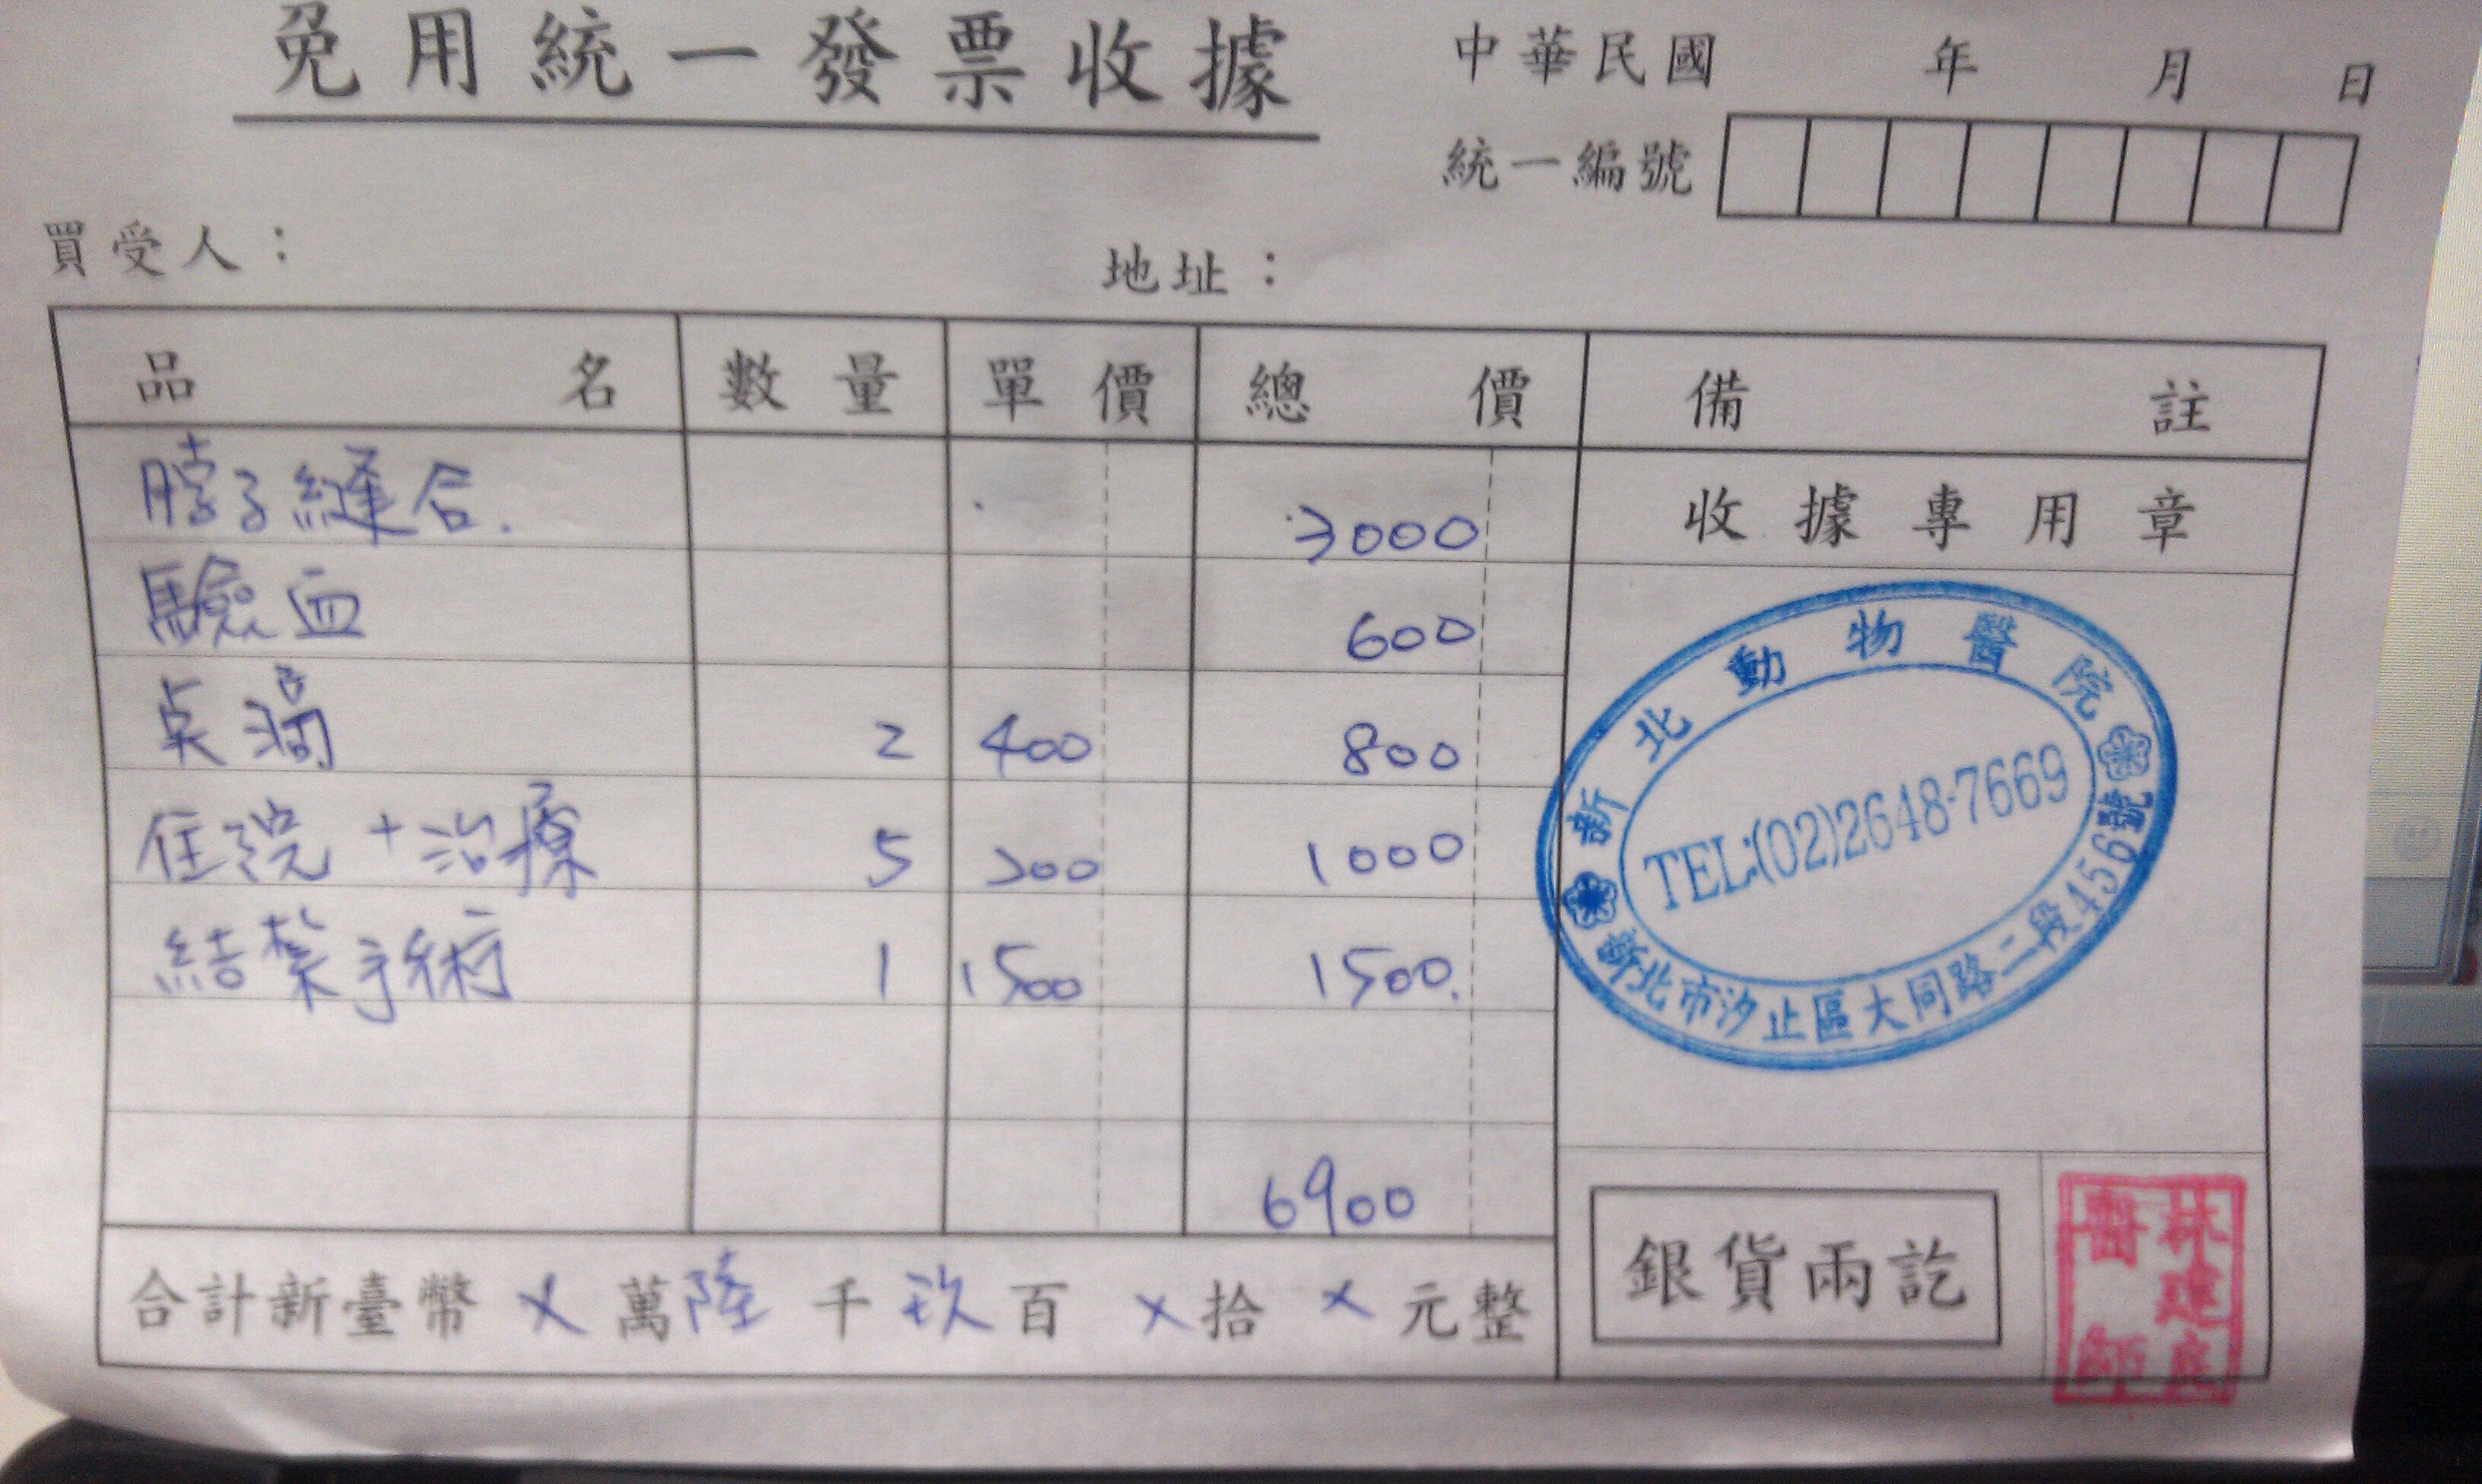 免用統一發票收據
中華民國 年 月 日
統一編號
買受人：
地址：
品名 數量 單價 總價 備註
脖子縫合. 3000
收據專用章
驗血 600
貞漏 2 400 800
住院+治療 5 200 1000
結紮手術 1 1500 1500.
6900
新北動物醫院
TEL:(02)2648-7669
新北市汐止區大同路二段456號
合計新臺幣 × 萬 陸 千 玖 百 × 拾 × 元整
銀貨兩訖
林建
醫師